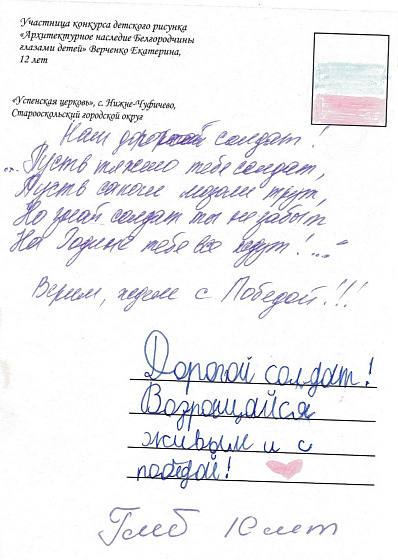 Участница конкурса детского рисунка
«Архитектурное наследие Белгородчины
глазами детей» Верченко Екатерина,
12 лет
«Успенская церковь», с. Нижне-Чуфичево,
Старооскольский городской округ
Наш дорогой солдат!
„.. Пусть тяжело тебе солдат,
Пусть сапоги мозоли трут,
Но знай солдат ты не забыт
На Родине тебя все ждут!..."
Верим, ждем с Победой!!!
Дорогой солдат!
Возрощайся
живым и с
победой!
Глеб 10 лет